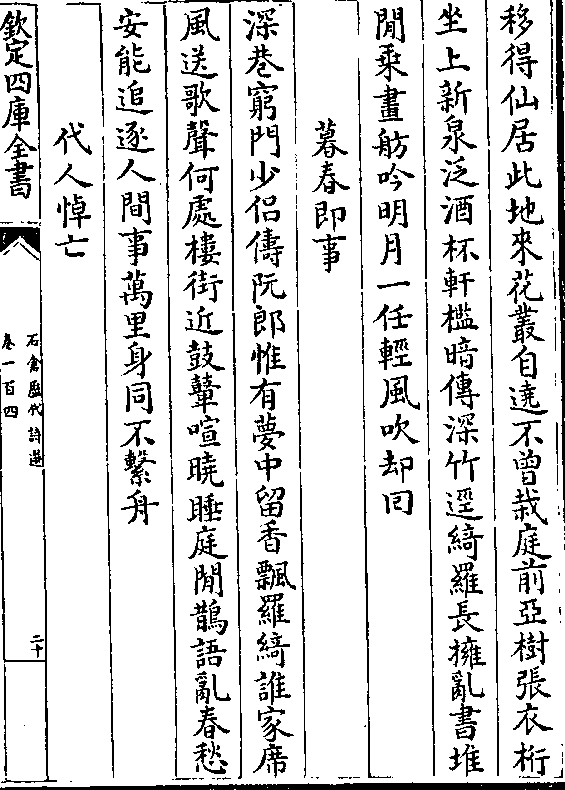 移得仙居此地來花叢自遶不曾栽庭前亞樹張衣桁
坐上新泉泛酒杯軒檻暗傳深竹逕綺羅長擁亂書堆
閒乘畫舫吟明月一任輕風吹却囘
暮春即事
深巷窮門少侶儔阮郎惟有夢中留香飄羅綺誰家席
風送歌聲何處樓街近鼓鼙喧曉睡庭閒鵲語亂春愁
安能追逐人間事萬里身同不繫舟
代人悼亡
欽定四庫全書
石倉歷代詩選
卷一百四
二十